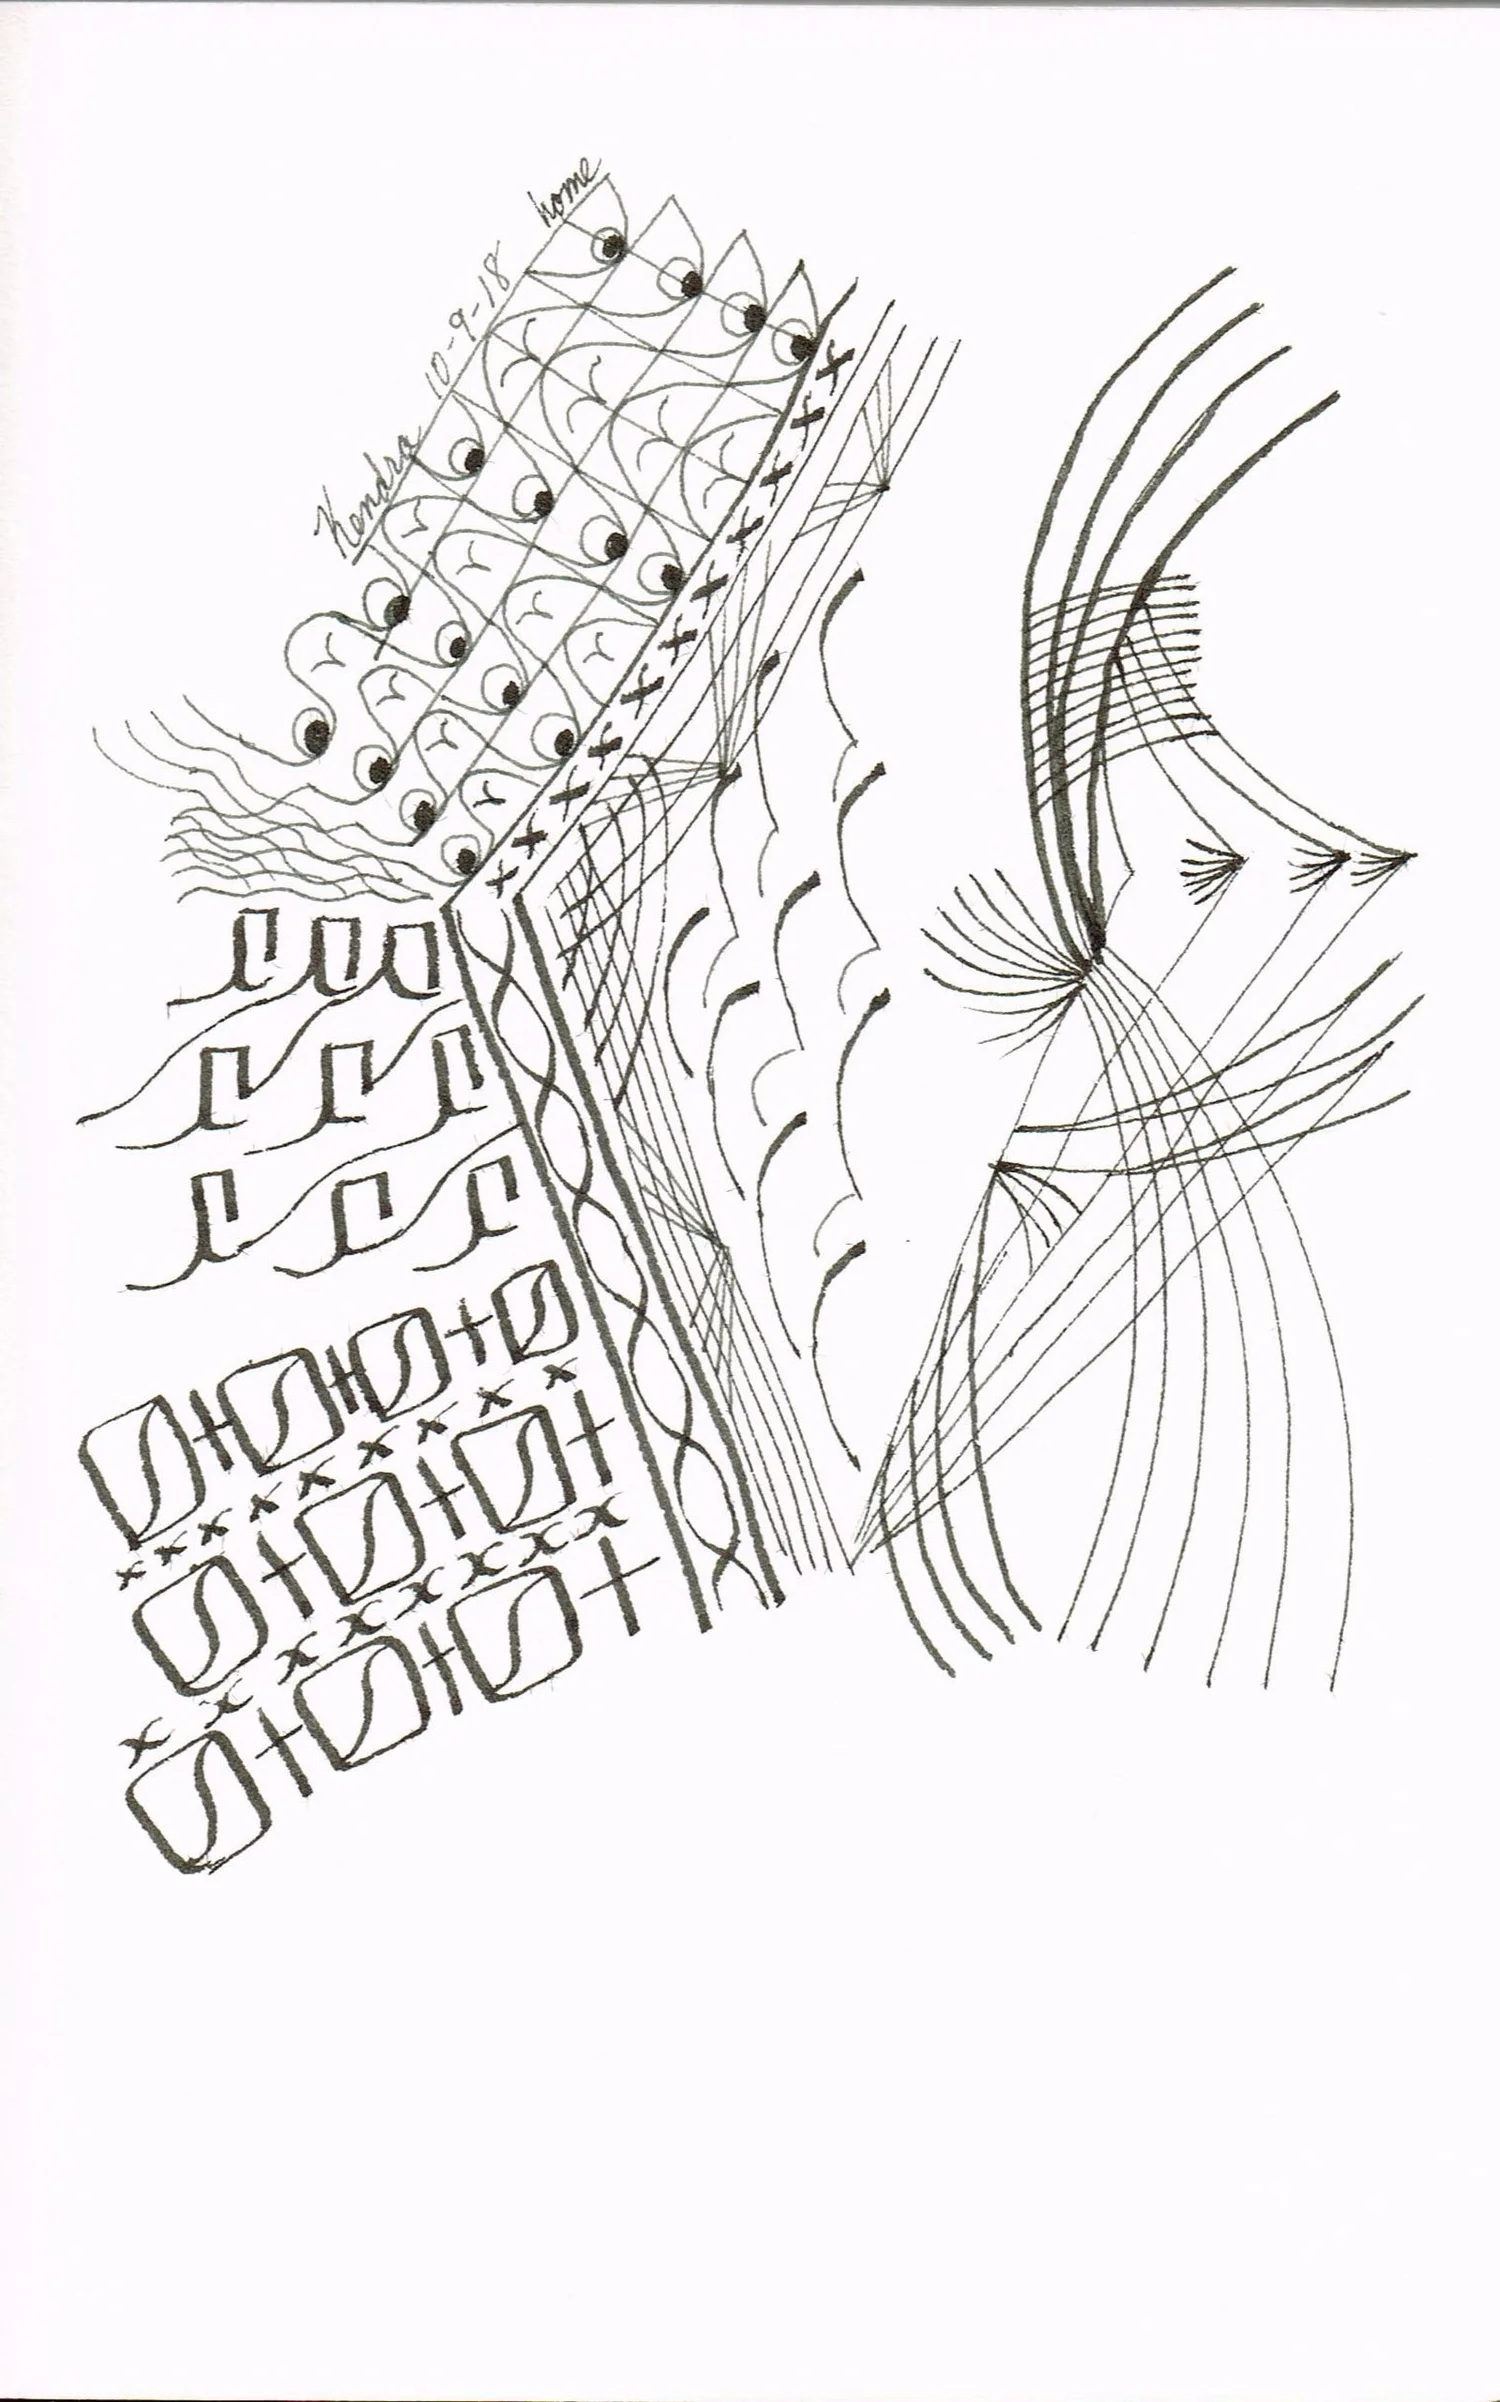 Kendra 10-9-18 home